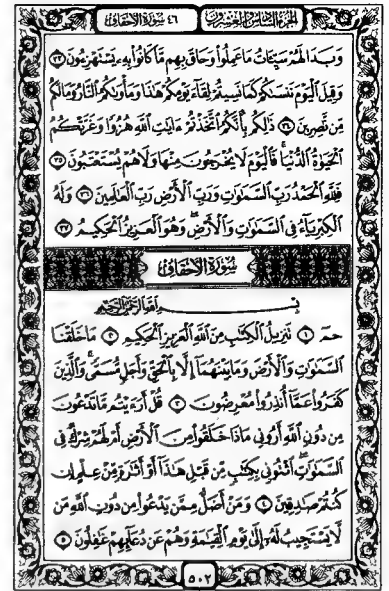 الجزء السادس والعشرون ٤٦ سورة الأحقاف
وَبَدَا لَهُمْ سَيِّئَاتُ مَا عَمِلُوا وَحَاقَ بِهِم مَّا كَانُوا بِهِ يَسْتَهْزِءُونَ ٣٣
وَقِيلَ الْيَوْمَ نَنسَىٰكُمْ كَمَا نَسِيتُمْ لِقَاءَ يَوْمِكُمْ هَٰذَا وَمَأْوَىٰكُمُ النَّارُ وَمَا لَكُم
مِّن نَّٰصِرِينَ ٣٤ ذَٰلِكُم بِأَنَّكُمُ اتَّخَذْتُمْ ءَايَٰتِ اللَّهِ هُزُوًا وَغَرَّتْكُمُ
الْحَيَوٰةُ الدُّنْيَا ۚ فَالْيَوْمَ لَا يُخْرَجُونَ مِنْهَا وَلَا هُمْ يُسْتَعْتَبُونَ ٣٥
فَلِلَّهِ الْحَمْدُ رَبِّ السَّمَٰوَٰتِ وَرَبِّ الْأَرْضِ رَبِّ الْعَٰلَمِينَ ٣٦ وَلَهُ
الْكِبْرِيَاءُ فِي السَّمَٰوَٰتِ وَالْأَرْضِ ۖ وَهُوَ الْعَزِيزُ الْحَكِيمُ ٣٧
سُورَةُ الْأَحْقَافِ
بِسْمِ اللَّهِ الرَّحْمَٰنِ الرَّحِيمِ
حمٓ ١ تَنزِيلُ الْكِتَٰبِ مِنَ اللَّهِ الْعَزِيزِ الْحَكِيمِ ٢ مَا خَلَقْنَا
السَّمَٰوَٰتِ وَالْأَرْضَ وَمَا بَيْنَهُمَا إِلَّا بِالْحَقِّ وَأَجَلٍ مُّسَمًّى ۚ وَالَّذِينَ
كَفَرُوا عَمَّا أُنذِرُوا مُعْرِضُونَ ٣ قُلْ أَرَءَيْتُم مَّا تَدْعُونَ
مِن دُونِ اللَّهِ أَرُونِي مَاذَا خَلَقُوا مِنَ الْأَرْضِ أَمْ لَهُمْ شِرْكٌ فِي
السَّمَٰوَٰتِ ۖ ائْتُونِي بِكِتَٰبٍ مِّن قَبْلِ هَٰذَا أَوْ أَثَٰرَةٍ مِّنْ عِلْمٍ إِن
كُنتُمْ صَٰدِقِينَ ٤ وَمَنْ أَضَلُّ مِمَّن يَدْعُوا مِن دُونِ اللَّهِ مَن
لَّا يَسْتَجِيبُ لَهُ إِلَىٰ يَوْمِ الْقِيَٰمَةِ وَهُمْ عَن دُعَائِهِمْ غَٰفِلُونَ ٥
٥٠٢